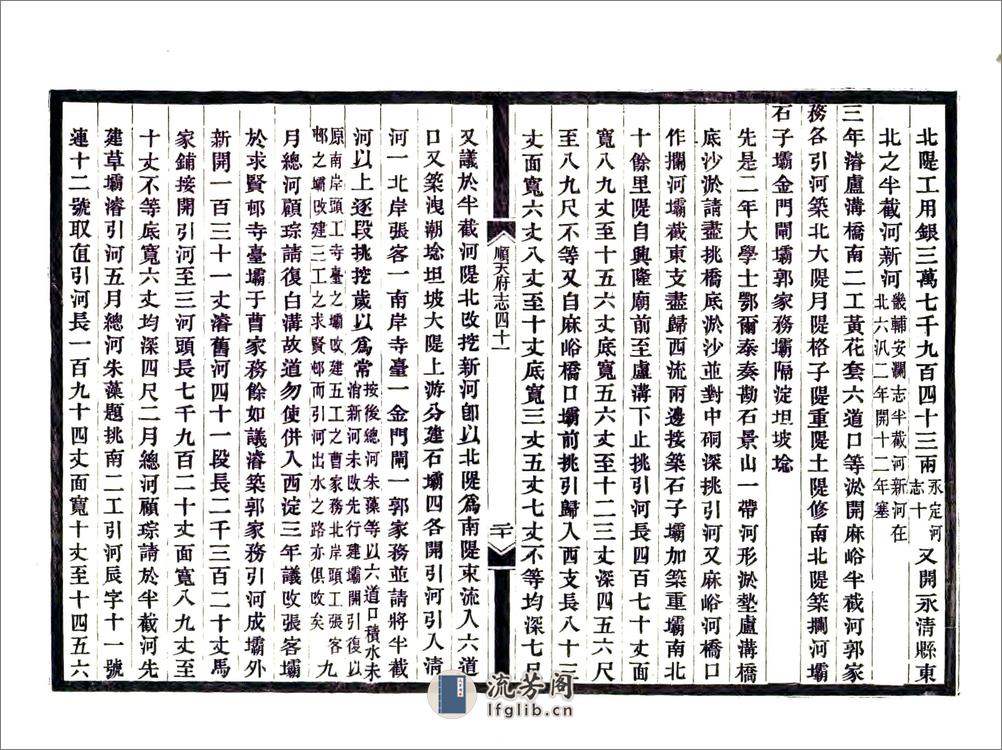 北隄工用銀三萬七千九百四十三兩永定河志十又開永清縣東
北之半截河新河畿輔安瀾志半截河新河在北六汛二年開十二年塞
三年濬盧溝橋南二工黃花套六道口等淤開麻峪半截河郭家
務各引河築北大隄月隄格子隄重隄土隄修南北隄築攔河壩
石子壩金門閘壩郭家務壩隔淀坦坡埝
先是二年大學士鄂爾泰奏勘石景山一帶河形淤墊盧溝橋
底沙淤請盡挑橋底淤沙並對中硐深挑引河又麻峪河橋口
作攔河壩截東支盡歸西流兩邊接築石子壩加築重壩南北
十餘里隄自興隆廟前至盧溝下止挑引河長四百七十丈面
寬八九丈至十五六丈底寬五六丈至十二三丈深四五六尺
至八九尺不等又自麻峪橋口壩前挑引歸入西支長八十三
丈面寬六丈八丈至十丈底寬三丈五丈七丈不等均深七尺
順天府志四十一
二十
又議於半截河隄北改挖新河卽以北隄爲南隄東流入六道
口又築洩潮埝坦坡大隄上游分建石壩四各開引河引入清
河一北岸張客一南岸寺臺一金門閘一郭家務並請將半截
河以上逐段挑挖歲以爲常按後總河朱藻等以六道口積水未消新河未改先行建壩開引復以
原南岸頭工寺臺之壩改建五工之曹家務北岸頭工張客邨之壩改建三工之求賢邨而引河出水之路亦俱改矣九
月總河顧琮請復白溝故道勿使併入西淀三年議改張客壩
於求賢邨寺臺壩于曹家務餘如議濬築郭家務引河成壩外
新開一百三十一丈濬舊河四十一段長二千三百二十丈馬
家鋪接開引河至三河頭長七千九百二十丈面寬八九丈至
十丈不等底寬六丈均深四尺二月總河顧琮請於半截河先
建草壩濬引河五月總河朱藻題挑南二工引河辰字十一號
連十二號取直引河長一百九十四丈面寬十丈至十四五六
流芳阁
lfglib.cn